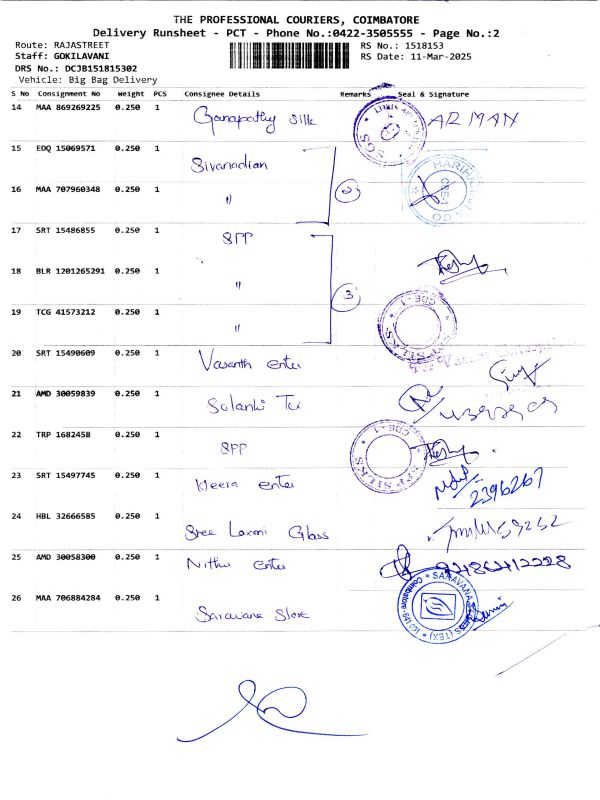 THE PROFESSIONAL COURIERS, COIMBATORE
Delivery Runsheet - PCT - Phone No.:0422-3505555 - Page No.:2
Route: RAJASTREET RS No.: 1518153
Staff: GOKILAVANI RS Date: 11-Mar-2025
DRS No.: DCJB151815302
Vehicle: Big Bag Delivery
S No Consignment No Weight PCS Consignee Details Remarks Seal & Signature
14 MAA 869269225 0.250 1 Ganapathy Silk SGS ARMAN
15 EDQ 15069571 0.250 1 Sivanadian
16 MAA 707960348 0.250 1 " 2 HARIHA & CO CBE-1
17 SRT 15486855 0.250 1 SPP
18 BLR 1201265291 0.250 1 "
19 TCG 41573212 0.250 1 " 3 SPP SILKS CBE-1
20 SRT 15490609 0.250 1 Vasanth enter
21 AMD 30059839 0.250 1 Solanki Tex
22 TRP 1682458 0.250 1 SPP SPP SILKS CBE-1
23 SRT 15497745 0.250 1 Heera enter 2396267
24 HBL 32666585 0.250 1 Sree Laxmi Glass
25 AMD 30058300 0.250 1 Nithu enter
26 MAA 706884284 0.250 1 Saravana Store SARAVANA (TEX) Coimbatore